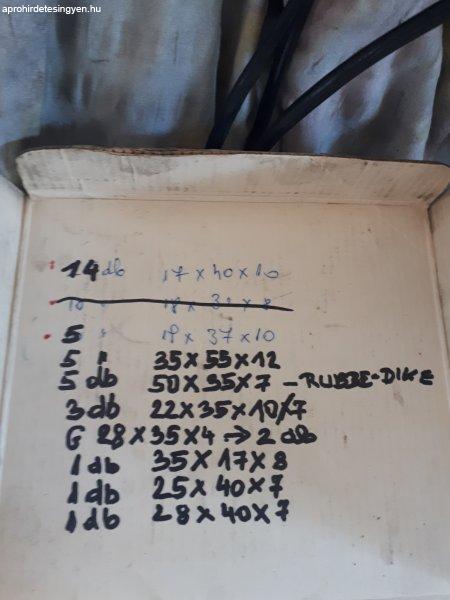 aprohirdetesingyen.hu
14 db 17 x 40 x 10
5 " 18 x 37 x 10
5 " 35 x 55 x 12
5 db 50 x 35 x 7 - RUBBE-DIKE
3 db 22 x 35 x 10/7
G 28 x 35 x 4 → 2 db
1 db 35 x 17 x 8
1 db 25 x 40 x 7
1 db 28 x 40 x 7